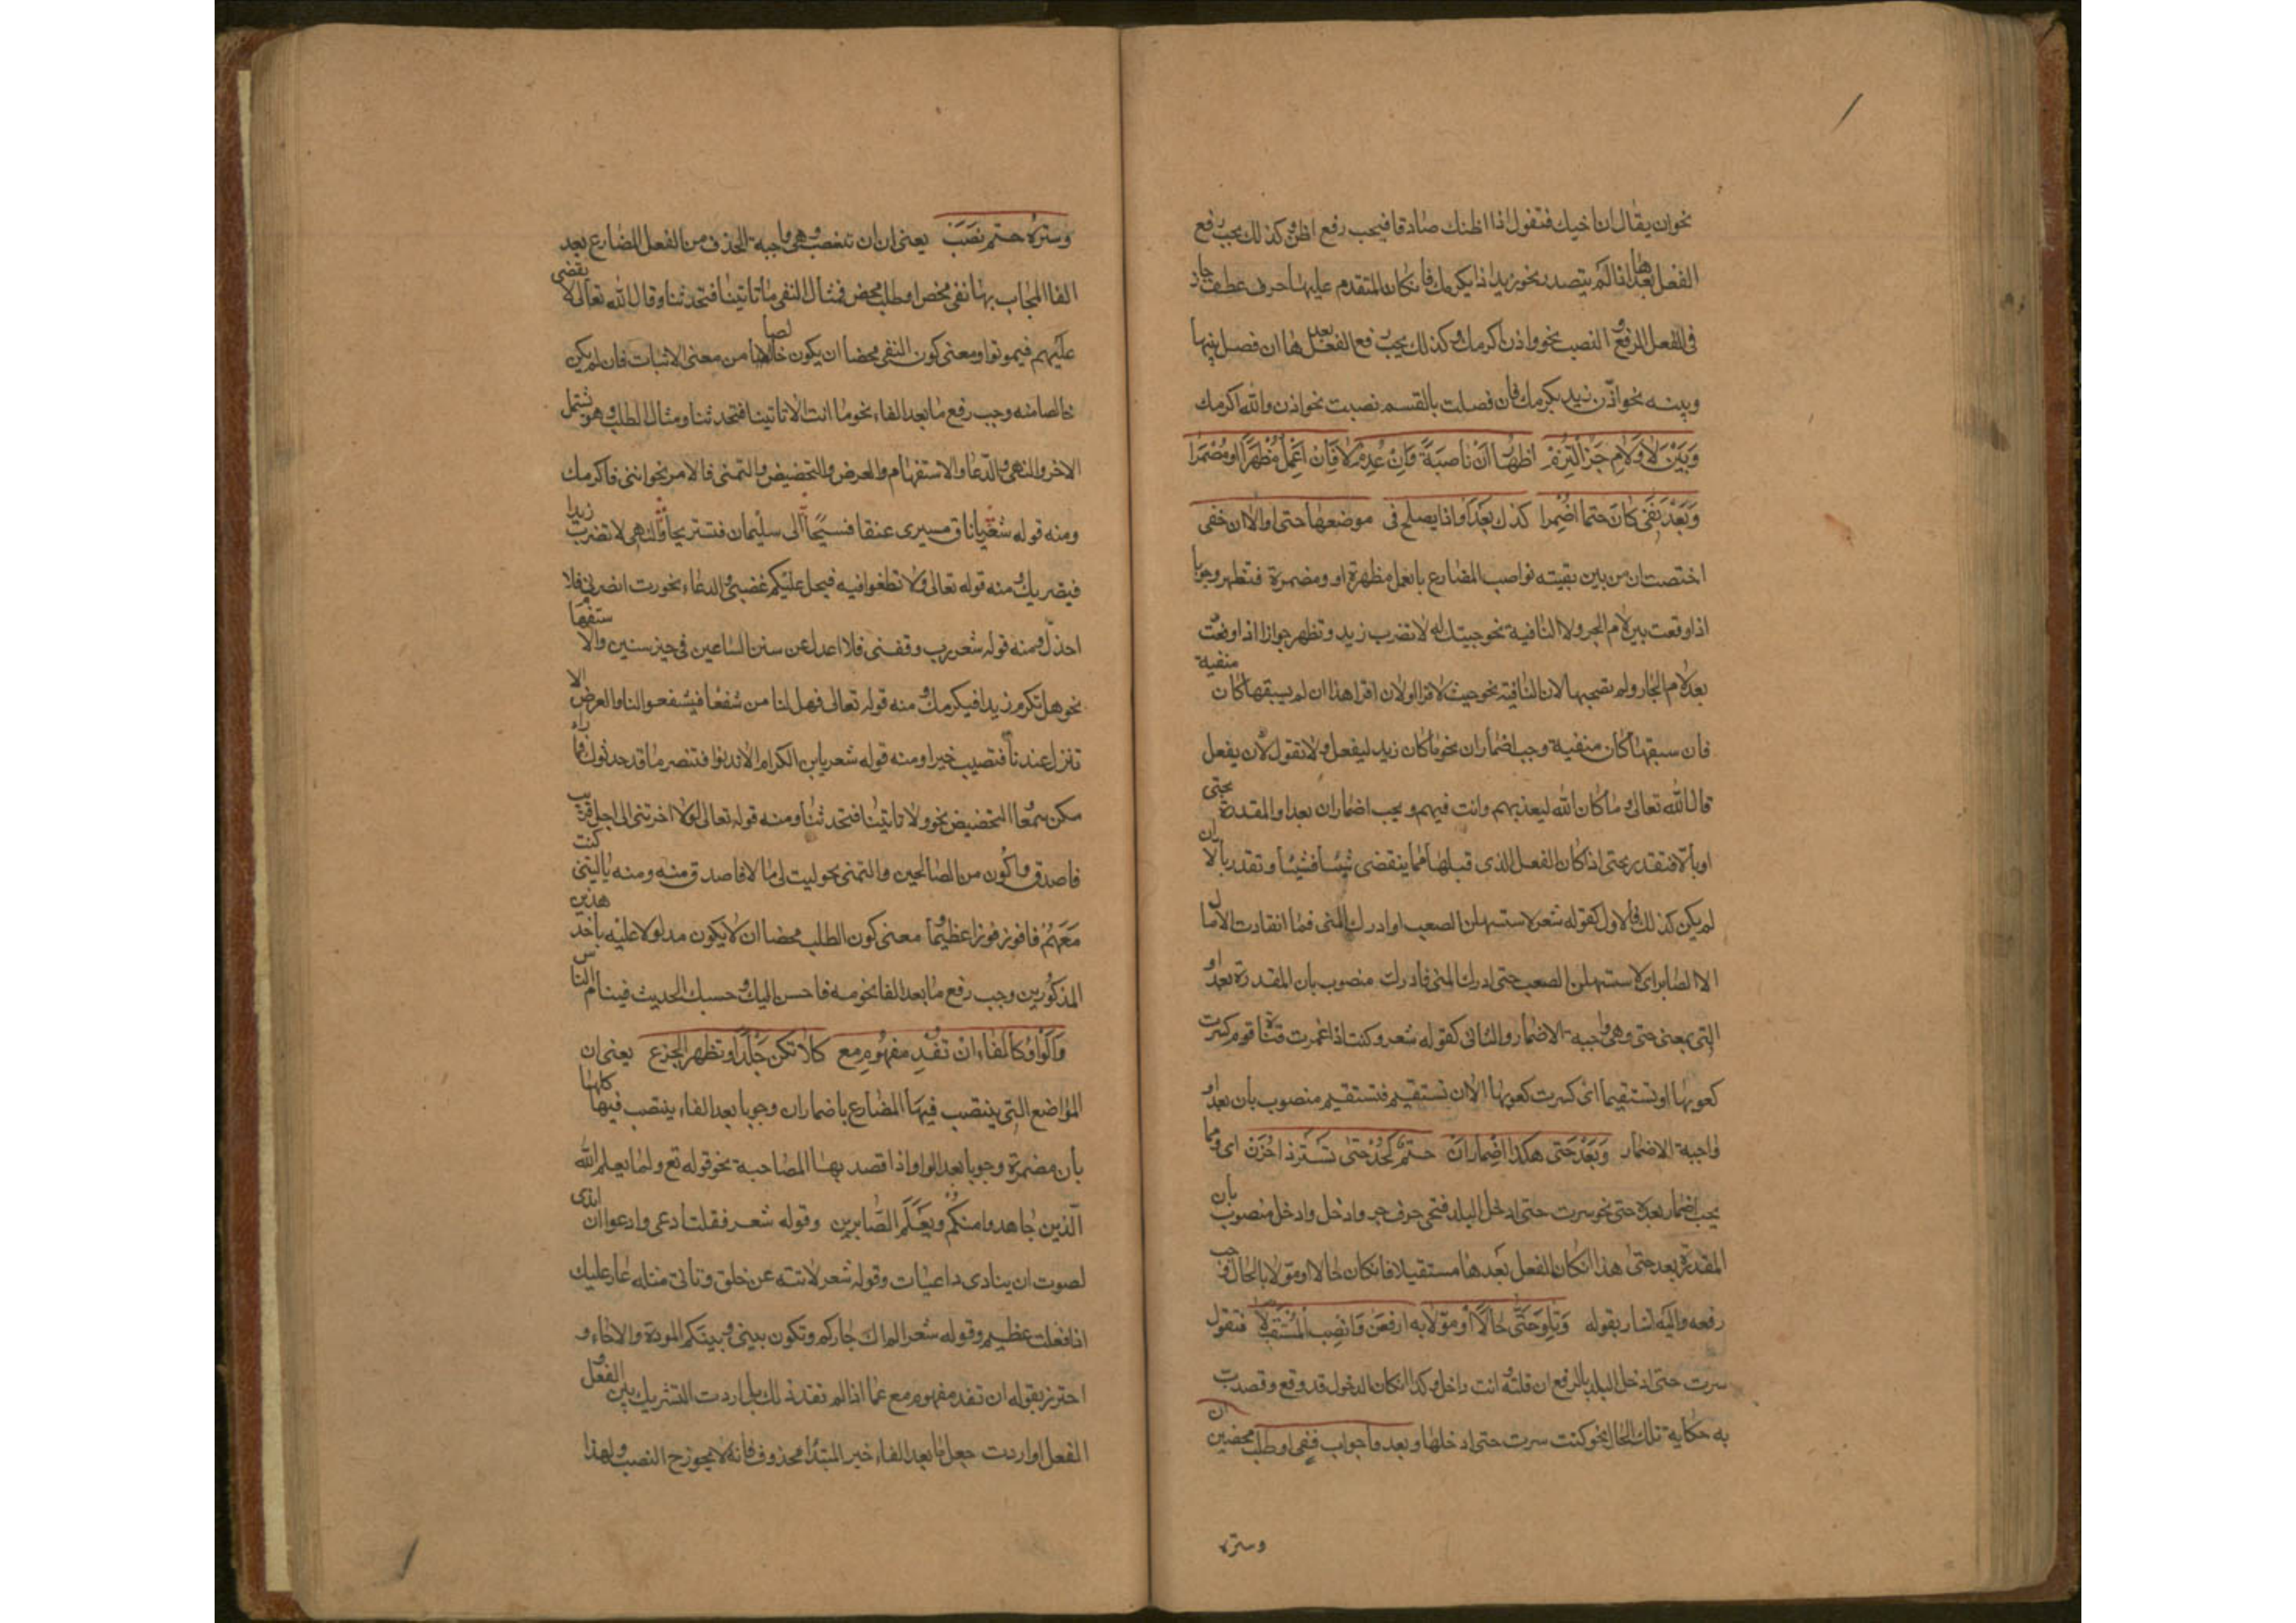 نحوان يقال انا خيك فتقول اذا اظنك صادقا فيجب رفع اظن وكذلك يجب رفع
الفعل بعدها اذا لم يتصدر نحو زيدا ذا يكرمك فان كان المتقدم عليها حرف عطف جاز
فى الفعل الرفع و النصب نحو واذن اكرمك وكذلك يجب رفع الفعل بعدها ان فصل بينها
وبينه نحو اذن زيد يكرمك فان فصلت بالقسم نصبت نحو اذن والله اكرمك
وَبَيْنَ لا وَلامِ جَرّ الْتُزِمْ اظهار اَنْ ناصبَةً وَاِنْ عُدِم لا فَاِنْ اَعْمِل مُظْهَرًا او مُضْمَرا
وَبَعْدَ نَفْى كَانَ حتما اُضْمِرا كذك بَعْدَ اَوْ اذا يصلح فى موضعها حتى او الا ان خفى
اختصت ان من بين بقيته نواصب المضارع بانعمل مظهرة او ومضمرة فتظهر وجوبا
اذا وقعت بين لام الجر ولا النافية نحو جيتك له لا تضرب زيد وتظهر جوازا اذا وقعت
بعد لام الجار ولم تصحبها لان النافية نحو جيت لاقرا ولان اقرا هذا ان لم يسبقها كان منفية
فان سبقها كان منفية وجب اضمار ان نحو ما كان زيد ليفعل ولا تقول لان يفعل
قال الله تعالى وما كان الله ليعذبهم وانت فيهم ويجب اضمار ان بعد او المقدرة بحتى
او بالا فتقدر بحتى اذا كان الفعل الذى قبلها مما ينقضى شيئا فشيئا وتقدر بالا ان
لم يكن كذلك فالاول كقوله شعر لاستسهلن الصعب او ادرك المنى فما انقادت الامال
الا الصابر اى لاستسهلن الصعب حتى ادرك المنى فادرك منصوب بان المقدرة بعد او
التى بمعنى حتى وهى واجبة الاضمار والثانى كقوله شعر وكنت اذا غمرت قناة قوم كسرت
كعوبها او تستقيما اى كسرت كعوبها الا ان تستقيم فتستقيم منصوب بان بعد او
واجبة الاضمار وَبَعْدَ حَتى هكذا اضمار ان حتم كَجُدْ حَتى تَسُرَّ ذا حَزَن اى ومما
يجب اضمار بعده حتى نحو سرت حتى ادخل البلد فتحى حرف جر وادخل وادخل منصوب بان
المقدرة بعد حتى هذا ان كان الفعل بعدها مستقبلا فان كان حالا او مؤولا بالحال وجب
رفعه واليه اشار بقوله وَتِلْوَ حَتّى حَالًا اَوْ مؤوّلا به ارفعَنّ وَانصِب المُسْتَقْبَلا فتقول
سرت حتى ادخل البلد بالرفع ان قلته وانت داخل وكذا ان كان الدخول قد وقع وقصدت
به حكاية تلك الحال نحو كنت سرت حتى ادخلها وبعد فا جواب نفى او طلب محضين ان
وستره
وستره حتم نَصَبَ يعنى ان ان تنصب وهى واجبة الحذف من الفعل المضارع بعد
الفا المجاب بها نفى محض او طلب محض فمثال النفى ما تاتينا فتحدثنا وقال الله تعالى لا يقضى
عليهم فيموتوا ومعنى كون النفى محضا ان يكون خالصا من معنى الاثبات فان لم يكن
خالصا منه وجب رفع ما بعد الفاء نحو ما انت الا تاتينا فتحدثنا ومثال الطلب وهو يشمل
الامر والنهى والدعا والاستفهام والعرض والتحضيض والتمنى فالامر نحو ائتنى فاكرمك
ومنه قوله شعر يا ناق سيرى عنقا فسيحا الى سليمان فنستريحا والنهى لا تضرب زيدا
فيضربك ومنه قوله تعالى ولا تطغوا فيه فيحل عليكم غضبى والدعاء نحو رب انصرنى فلا
اخذل ومنه قوله شعر رب وفقنى فلا اعدل عن سنن الساعين فى خير سنن والاستفهام
نحو هل تكرم زيدا فيكرمك ومنه قوله تعالى فهل لنا من شفعا فيشفعوا لنا والعرض الا
تنزل عندنا فتصيب خيرا ومنه قوله شعر يا بن الكرام الا تدنوا فتبصر ما قد حدثوك فما راء
مكن سمعا التحضيض نحو ولا تاتينا فتحدثنا ومنه قوله تعالى لولا اخرتنى الى اجل قريب
فاصدق واكون من الصالحين والتمنى نحو ليت لى مالا فاصدق منه ومنه يا ليتنى كنت
مَعَهُمْ فافوز فوزا عظيما ومعنى كون الطلب محضا ان لا يكون مدلولا عليه باحد هذين
المذكورين وجب رفع ما بعد الفا نحو مه فاحسن اليك وحسبك الحديث فينام الناس
وَالْوَاوُ كَالْفاء انْ تُفِدْ مفهُوم مع كَلا تَكُنْ جَلْدًا وتظهر الجزع يعنى ان
المواضع التى ينتصب فيها المضارع باضمار ان وجوبا بعد الفاء ينتصب فيها كلها
بان مضمرة وجوبا بعد الواو اذا قصد بها المصاحبة نحو قوله تع ولما يعلم الله
الّذين جاهدوا منكُمْ ويَعْلَمَ الصّابرين وقوله شعر فقلت ادعى وادعوا ان اندى
لصوت ان ينادى داعيات وقوله شعر لا تنته عن خلق وتاتى مثله عار عليك
اذا فعلت عظيم وقوله شعر الم اك جاركم وتكون بينى وبينكم المودة والاخاء و
احترز بقوله ان تفد مفهوم مع عما اذا لم تفد ذلك بل اردت التشريك بين الفعل و
الفعل او اردت جعل ما بعد الفاء خبر المبتدأ محذوف فانه لا يجوز ح النصب ولهذا